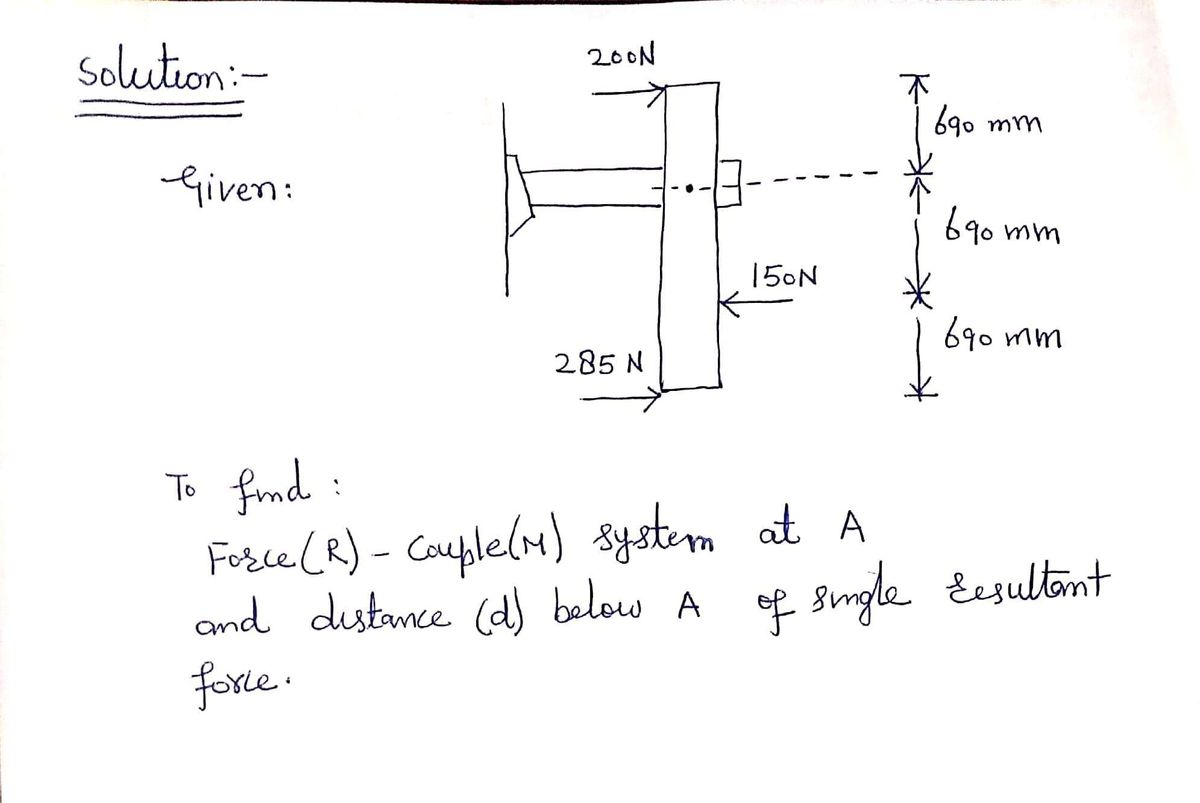 Solution:-
200N
690 mm
Given:
690 mm
150N
690 mm
285 N
To find :
Force(R) - Couple(M) system at A
and distance (d) below A of single resultant
force.